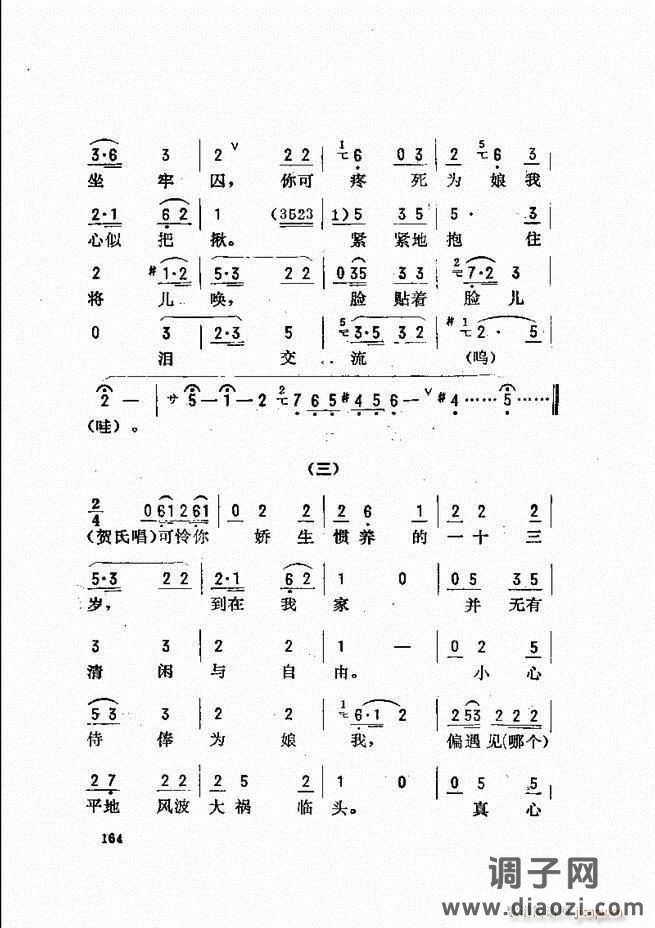 3·6 3 | 2 ˅ 2 2 | 1 6 0 3 | 2 5 6 3 |
坐 牢 囚， 你可 疼 死 为 娘 我
2·1 6 2 | 1 (3523 | 1) 5 3 5 | 5· 3 |
心似 把 揪。 紧 紧地 抱 住
2 #1·2 | 5·3 2 2 | 0 35 5 5 | 2 7·2 3 |
将 儿 唤， 脸 贴着 脸 儿
0 3 | 2·3 5 | 5 3·5 3 2 | #1 2· 5 |
泪 交 流 (呜)
2 — | サ 5 — 1 — 2 2 7 6 5 #4 5 6 — ˅ #4 …… 5 …… ‖
(哇)。
(三)
2/4 0 61 2 61 | 0 2 2 | 2 6 1 | 2 2 2 |
(贺氏唱)可怜你 娇 生 惯 养 的 一 十 三
5·3 2 2 | 2·1 6 2 | 1 0 | 0 5 3 5 |
岁， 到在 我 家 并 无有
3 3 | 2 2 | 1 — | 0 2 5 |
清 闲 与 自 由。 小 心
5 3 3 | 2 2 | 1 6·1 2 | 2 53 2 2 2 |
侍 俸 为 娘 我， 偏遇 见(哪个)
2 7 2 2 | 2 5 5 | 1 0 | 0 5 5 |
平地 风波 大 祸 临 头。 真 心
164
调子网
www.diaozi.com